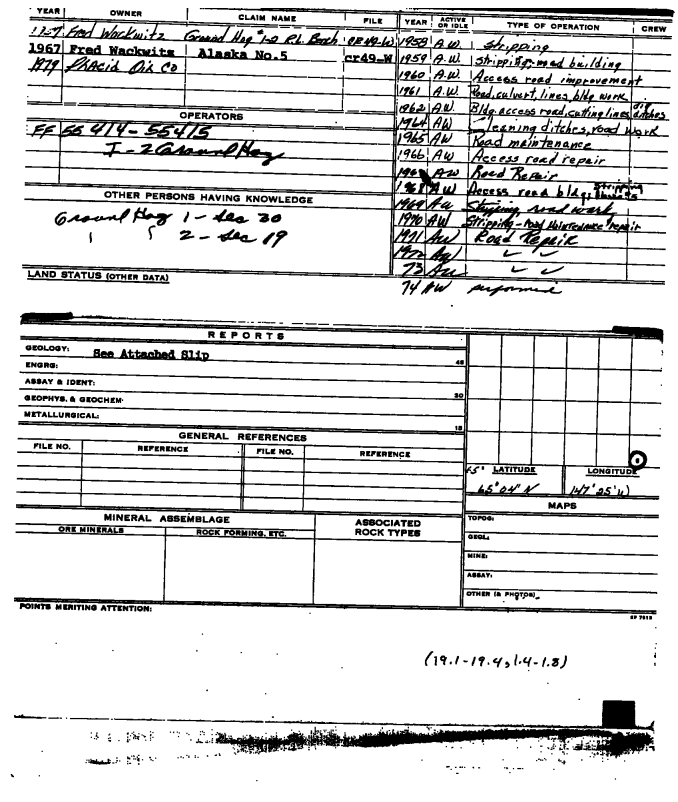 YEAR OWNER CLAIM NAME FILE YEAR ACTIVE OR IDLE TYPE OF OPERATION CREW
Fred Wackwitz Ground Hog 1-2 P.L. Bench cr49-W 1958 A.W. Stripping
1967 Fred Wackwitz Alaska No.5 cr49-W 1959 A.W. Stripping-road building
1979 Placid Oil Co 1960 A.W. Access road improvement
1961 A.W. Road, culvert, lines, bldg work
1962 A.W. Bldg. access road, cutting lines, dig ditches
OPERATORS 1964 A.W. Cleaning ditches, road work
FF 55414-55415 1965 AW Road maintenance
1-2 Ground Hog 1966 AW Access road repair
AW Road Repair
OTHER PERSONS HAVING KNOWLEDGE 1968 AW Access road bldg, Stripping
Ground Hog 1 - Sec 30 1969 AW Stripping, road work
2 - Sec 19 1970 AW Stripping-road Maintenance repair
1971 AW Road Repair
1972 AW ✓ ✓
73 AW ✓ ✓
LAND STATUS (OTHER DATA) 74 AW performed
REPORTS
GEOLOGY: See Attached Slip
45
ENGRG:
ASSAY & IDENT:
30
GEOPHYS. & GEOCHEM:
METALLURGICAL:
15
GENERAL REFERENCES
FILE NO. REFERENCE FILE NO. REFERENCE
65° LATITUDE LONGITUDE
65°04' N 147°25'W
MAPS
MINERAL ASSEMBLAGE ASSOCIATED ROCK TYPES TOPOG:
ORE MINERALS ROCK FORMING, ETC.
GEOL:
MINE:
ASSAY:
OTHER (& PHOTOS)
POINTS MERITING ATTENTION:
SP 7813
(19.1-19.4, 1.4-1.8)